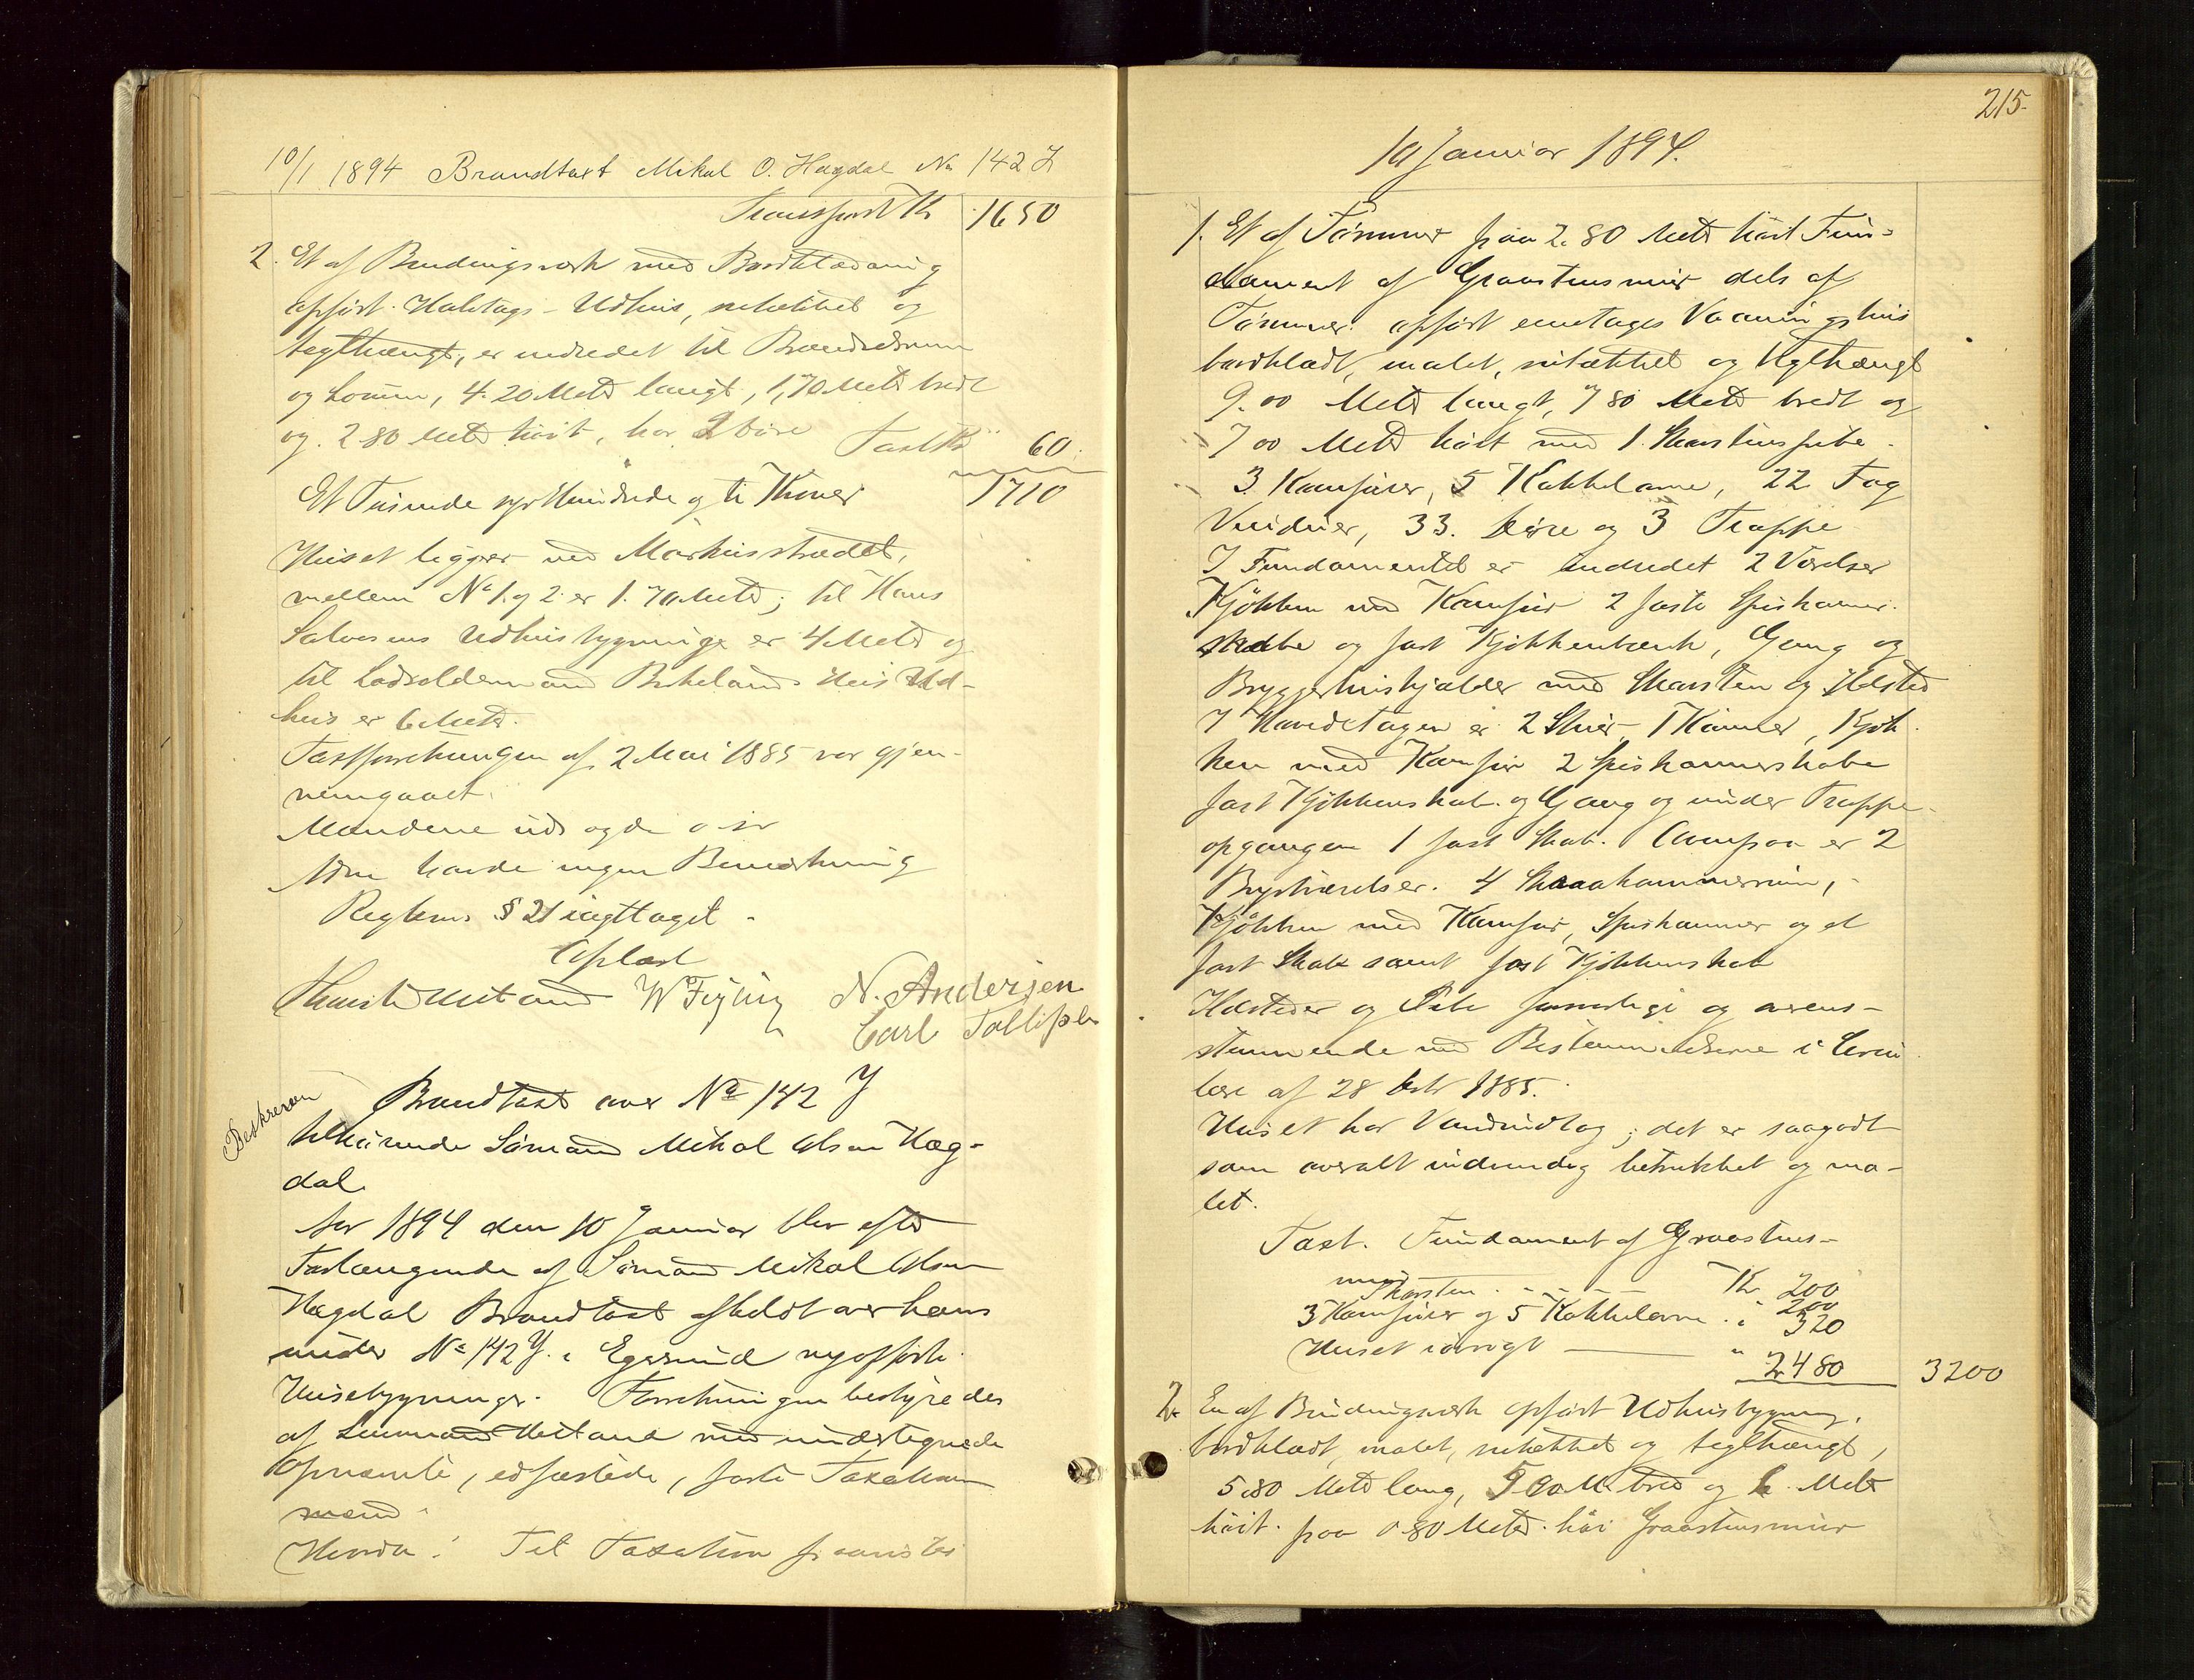 10/1 1894 Brandtaxt Mikal O. Hægdal No 142 Z
Transport Kr 1650
2. Et af Bindingsværk med Bordklædning
opført Halvtags-Udhus, sutækket og
teglhængt, er indredet til Brænderum
og Lokum, 4.20 Meter langt, 1,70 Meter bredt
og 2 80 Meter høit, har 2 Døre Taxt Kr 60
Et Tusinde syv Hundrede og ti Kroner 1710
Huset ligger ved
mellem No 1. og 2. er 1.70 Meter; til Hans
Salvesens Udhusbygninge er 4 Meter og
til Lodsoldermand Birkelands Ud-
hus er 6 Meter.
Taxtforretningen af 2 Mai 1885 var gjen-
nemgaaet.
Mændene
havde ingen Bemærkning
Reglem. § 21 iagttaget.
Oplæst
W Feyling N. Andersen
Carl Tollefsen
Beskreven
Brandtaxt over No 142 Y
tilhørende Sømand Mikal Olsen Hæg-
dal.
Aar 1894 den 10 Januar blev efter
Forlangende af Sømand Mikal Olsen
Hægdal Brandtaxt afholdt over hans
under No 142 Y i Egersund nyopførte
Husebygninger. Forretningen bestyredes
af Lensmand med undertegnede
opnævnte, edfæstede, faste Taxations
mænd.
Til Taxation fremstes
215.
10 Januar 1894.
1. Et af Tømmer paa 2.80 Meter høit Fun-
dament af Graastensmur dels af
Tømmer opført eenetages Vaaningshus
bordklædt, malet, sutækket og teglhængt
9.00 Meter langt, 7 80 Meter bredt og
7 00 Meter høit med 1 Skorstenspibe.
3 Komfurer, 5 Kakkelovne, 22 Fag
Vinduer, 33. Døre og 3 Trapper
I Fundamentet er indredet 2 Værelser
Kjøkken med Komfur 2 faste Spiskammer-
skabe og fast Kjøkkenbænk, Gang og
Bryggerhuskjælder med Skorsten og Ildsted
I Hovedetagen er 2 Stuer, 1 Kammer, Kjøk-
ken med Komfur 2 Spiskammerskabe
fast Kjøkkenskab og Gang og under Trappe-
opgangen 1 fast Skab. Ovenpaa er 2
Kvistværelser. 4 Skraakammerrum,
Kjøkken med Komfur, Spiskammer og et
fast Skab samt fast Kjøkkenskab
Ildsteder og Pibe forsvarlige og overens-
stemmende med Bestemmelserne i Cirku-
lære af 28 1885.
Huset har Vandindtag; det er saagodt
som overalt indvendig betrukket og ma-
let.
Taxt. Fundament af Graastens-
mur Kr 200
Skorsten - - - - - 200
3 Komfurer og 5 Kakkelovne " 320
Huset iøvrigt — " 2480 3200
2. En af Bindingsværk opført Udhusbygning,
bordklædt, malet, sutækket og teglhængt,
5.80 Meter lang, bred og Meter
høit. paa 0 80 Meter høi Graastensmur